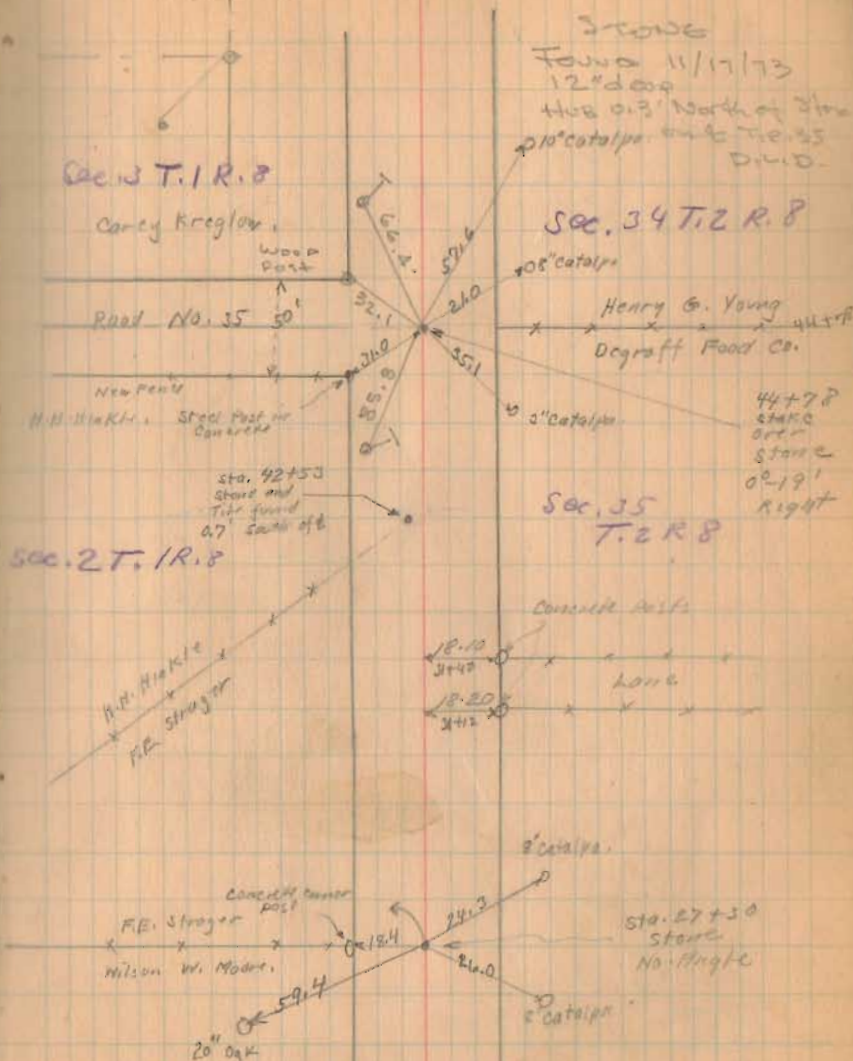 STONE
Found 11/17/73
12" deep
Hub 0.3' North of Stone
on ₵ T.R. 35
D.L.D.
10" Catalpa.
Sec. 3 T.1 R.8
Carey Kreglow.
Wood
Post
66.4
57.6
Sec. 34 T.2 R.8
8" Catalpa
32.1
26.0
Road No. 35 50'
Henry G. Young
Degraff Food Co.
31.0
35.1
New Fence
H.H. Hinkle.
Steel Post in
Concrete
3" Catalpa
44+78
Stake
over
Stone
0°-19'
Right
Sta. 42+53
Stone and
Tile found
0.7' South of ₵
Sec. 2 T.1 R.8
Sec. 35
T.2 R 8
Concrete Posts
18.10
31+40
Lane
18.20
31+12
H.H. Hinkle
F.E. Strayer
Catalpa.
Concrete corner
post
24.3
F.E. Strayer
18.4
Wilson W. Moore.
26.0
Sta. 27+30
Stone
No Angle
59.4
Catalpa
20" Oak